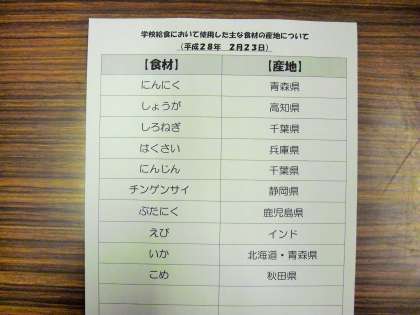 学校給食において使用した主な食材の産地について
(平成28年 2月23日)
【食材】 【産地】
にんにく 青森県
しょうが 高知県
しろねぎ 千葉県
はくさい 兵庫県
にんじん 千葉県
チンゲンサイ 静岡県
ぶたにく 鹿児島県
えび インド
いか 北海道・青森県
こめ 秋田県